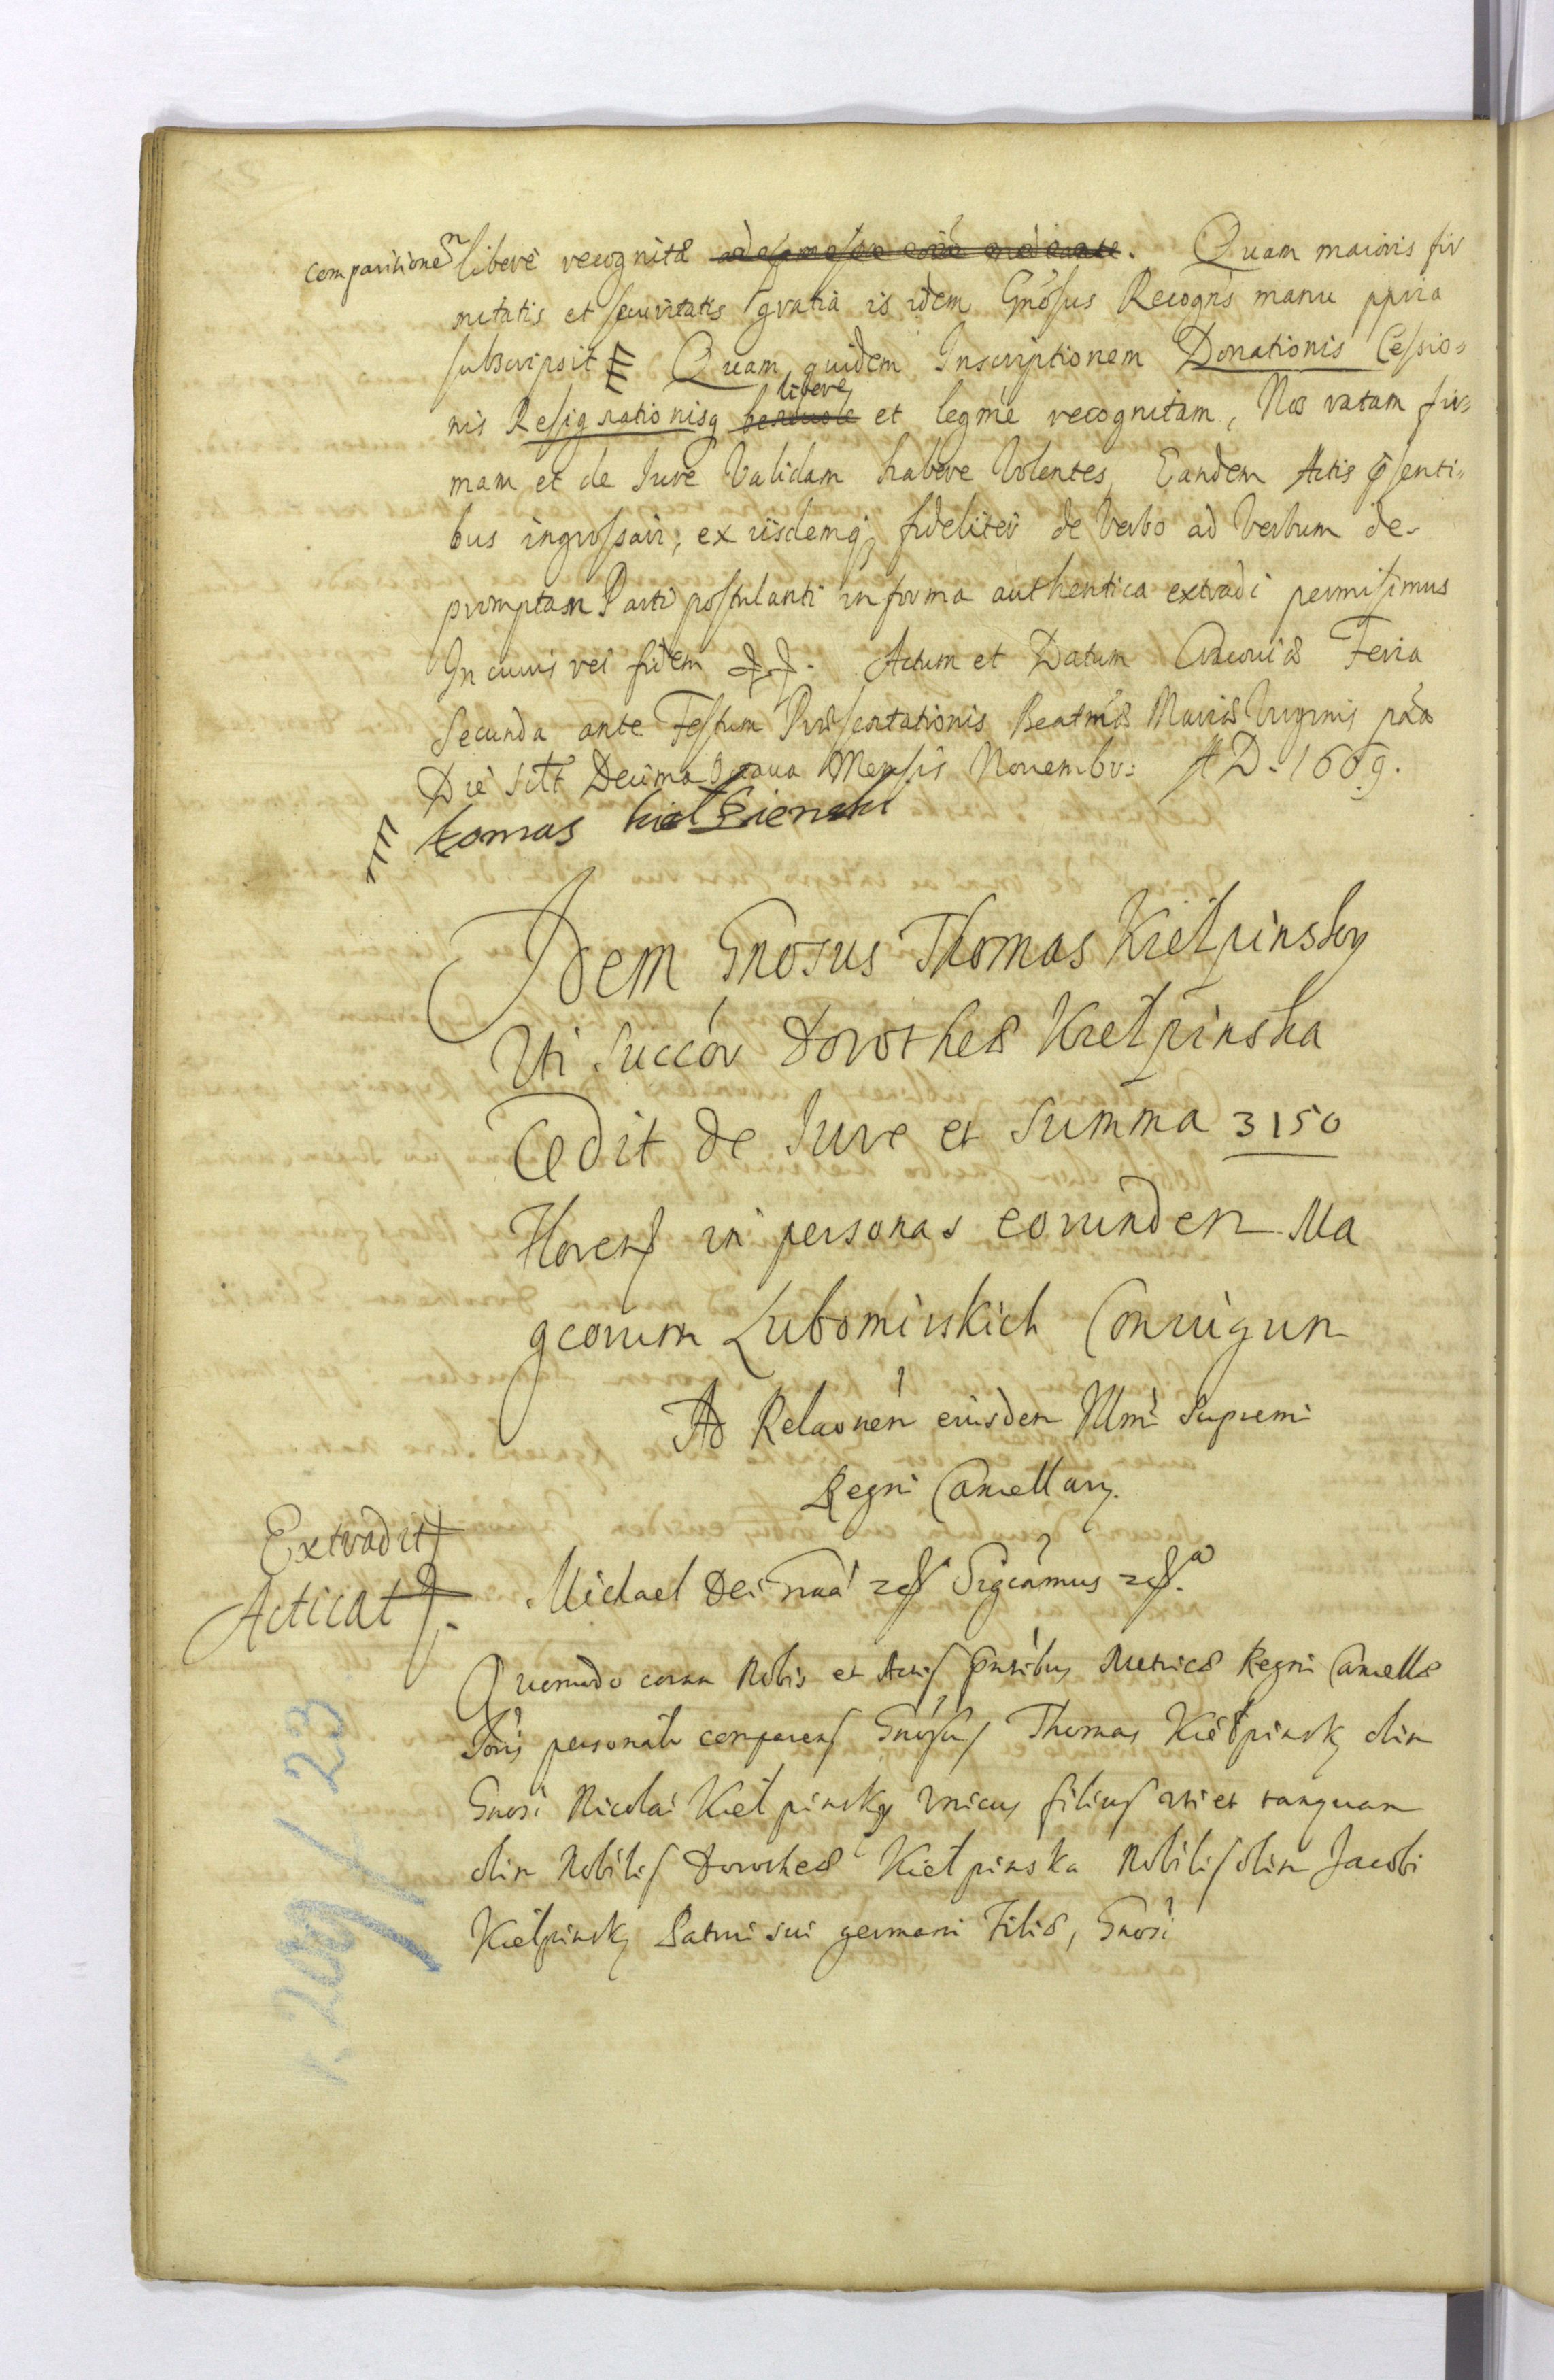 comparitionem libere recognitæ Quam maioris fir
mitatis et securitatis gratia is idem Gnosus Recogns manu ppria
subscripsit Quam quidem Inscriptionem Donationis Cessio=
nis Resignationisq libere et legme recognitam, Nos ratam fir=
mam et de Iure Validam habere Volentes, Eandem Actis psenti=
bus ingrossari, ex iisdemq fideliter de Verbo ad Verbum de-
promptam Parti postulanti in forma authentica extradi permisimus
In cuius rei fidem Actum et Datum Cracoviæ Feria
Secunda ante Festum Præsentationis Beatmæ Mariæ Virginis pxa
Die scilt Decima Octava Mensis Novembr: AD. 1669.
tomas kiełpienski
Idem Gnosus Thomas Kiełpinsky
Uti Succor Dorotheæ Kiełpinska
Cedit de Iure et Summa 3150
Floren in personas eorundem Ma
gcorum Lubomirskich Coniugum
Ad Relaonem eiusdem Illmi Supremi
Regni Cancellarij.
Extradit
Acticat
Michael Dei Graa Sigcamus
Quomodo coram Nobis et Actis pntibus Metricæ Regni Cancellæ
Poris personalr comparens Gnosus Thomas Kiełpinsky olim
Gnosi Nicolai Kiełpinsky unicus filius uti et tanquam
olim Nobilis Dorotheæ Kiełpinska Nobilis olim Jacobi
Kiełpinsky Patrui sui germani Filiæ, Gnosi
k. 209/23